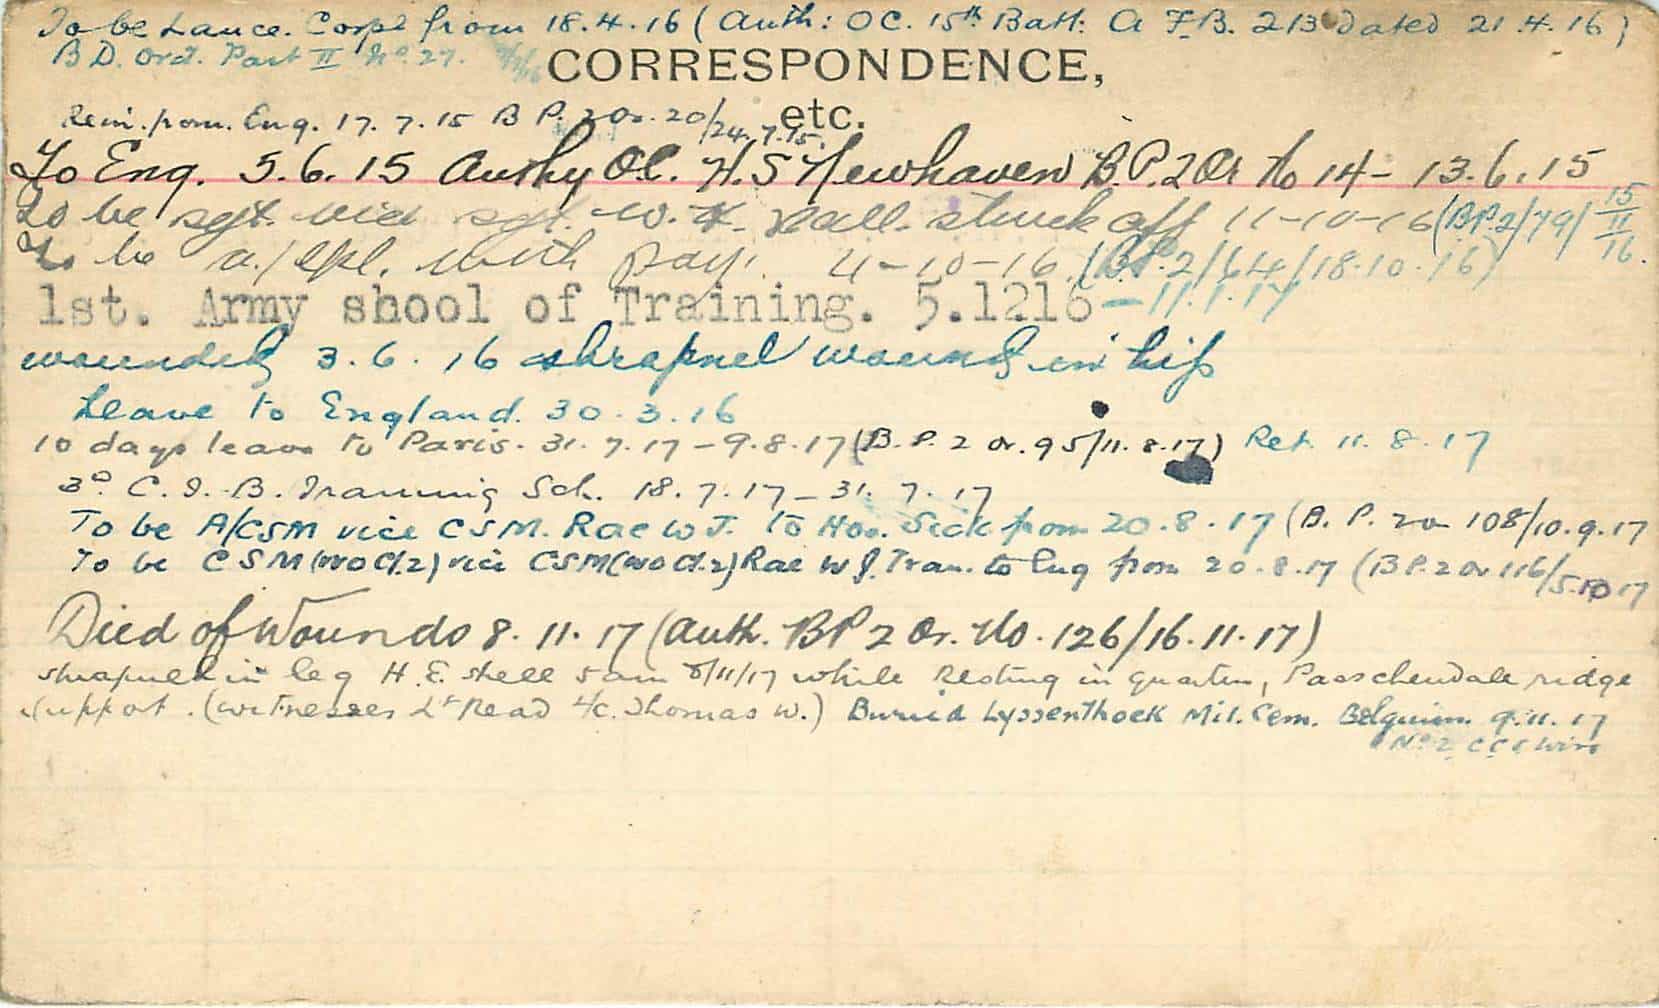 To be Lance. Corpl from 18.4.16 (Auth: OC. 15th Batt: A F.B. 213 dated 21.4.16)
B D. Ord. Part II No. 27.
CORRESPONDENCE,
etc.
Rein. from. Eng. 17.7.15 B P. 2 Or. 20/24.7.15.
To Eng. 5.6.15 Authy O.C. H.S Newhaven B.P.2 Or No 14 - 13.6.15
To be sgt. vice sgt. W. H. Hall. struck off 11-10-16 (BP.2/79/15/11/16.
To be a/Cpl. with pay. 4-10-16. (B.P.2/64/18.10.16)
1st. Army shool of Training. 5.1216 - 11.1.17
wounded 3.6.16 shrapnel wound in hip
Leave to England. 30.3.16
10 days leave to Paris. 31.7.17 - 9.8.17 (B.P. 2 Or. 95/11.8.17) Ret. 11.8.17
3rd C.I.B. Training Sch. 18.7.17 - 31.7.17
To be A/CSM vice CSM. Rae W J. to Hos. Sick from 20.8.17 (B. P. 2 Or 108/10.9.17
To be CSM (WO Cl.2) vice CSM (WO Cl.2) Rae W J. Tran. to Eng from 20.8.17 (B P.2 Or 116/5.10 17
Died of Wounds 8.11.17 (Auth. BP 2 Or. No. 126/16.11.17)
shrapnel in leg H.E. shell 5 am 8/11/17 while Resting in quarters, Passchendale ridge
support. (witnesses Lt Read L/c. Thomas W.) Buried Lyssenthoek Mil. Cem. Belguim. 9.11.17
No 2 CCS Wire